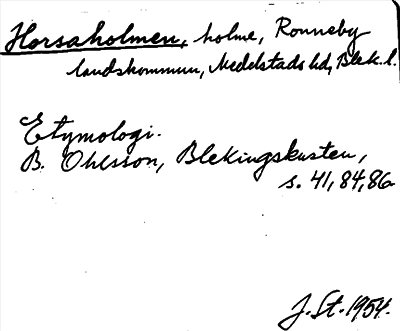 Horsaholmen, holme, Ronneby
landskommun, Medelstads hd, Blek. l.
Etymologi.
B. Ohlsson, Blekingskusten,
s. 41, 84, 86
J. St. 1954.